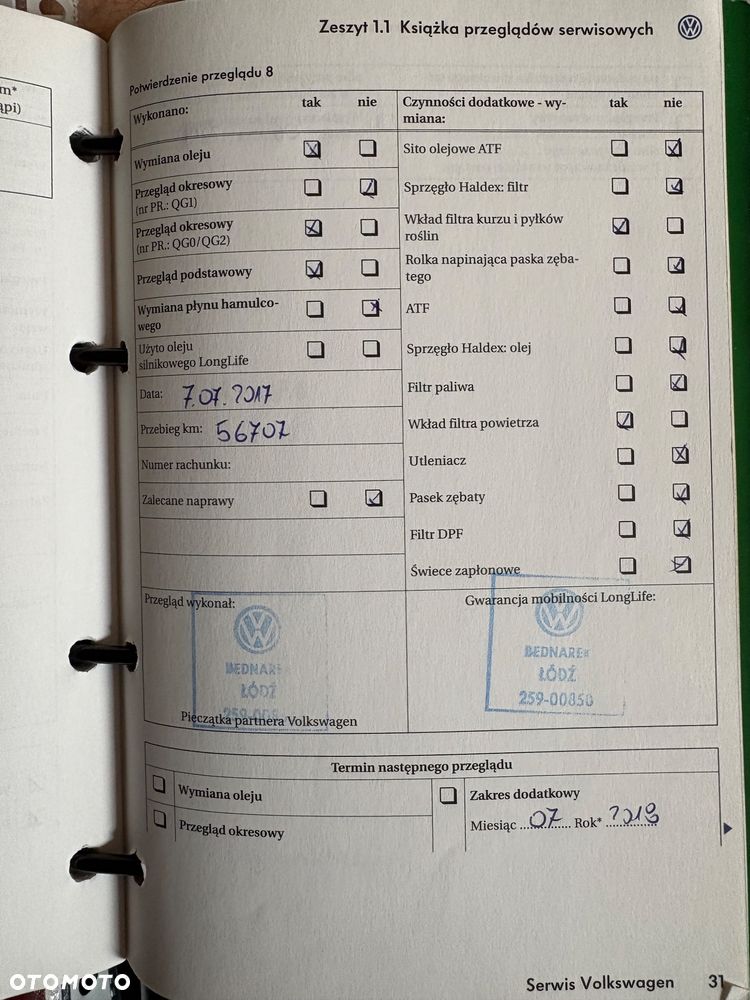 Zeszyt 1.1 Książka przeglądów serwisowych
m*
ąpi)
Potwierdzenie przeglądu 8
Wykonano: tak nie
Wymiana oleju
Przegląd okresowy
(nr PR.: QG1)
Przegląd okresowy
(nr PR.: QG0/QG2)
Przegląd podstawowy
Wymiana płynu hamulco-
wego
Użyto oleju
silnikowego LongLife
Data: 7.07.2017
Przebieg km: 56707
Numer rachunku:
Zalecane naprawy
Czynności dodatkowe - wy- tak nie
miana:
Sito olejowe ATF
Sprzęgło Haldex: filtr
Wkład filtra kurzu i pyłków
roślin
Rolka napinająca paska zęba-
tego
ATF
Sprzęgło Haldex: olej
Filtr paliwa
Wkład filtra powietrza
Utleniacz
Pasek zębaty
Filtr DPF
Świece zapłonowe
Przegląd wykonał:
BEDNAREK
ŁÓDŹ
Pieczątka partnera Volkswagen
Gwarancja mobilności LongLife:
BEDNAREK
ŁÓDŹ
259-00850
Termin następnego przeglądu
Wymiana oleju
Przegląd okresowy
Zakres dodatkowy
Miesiąc 07 Rok* 2018
Serwis Volkswagen 31
OTOMOTO